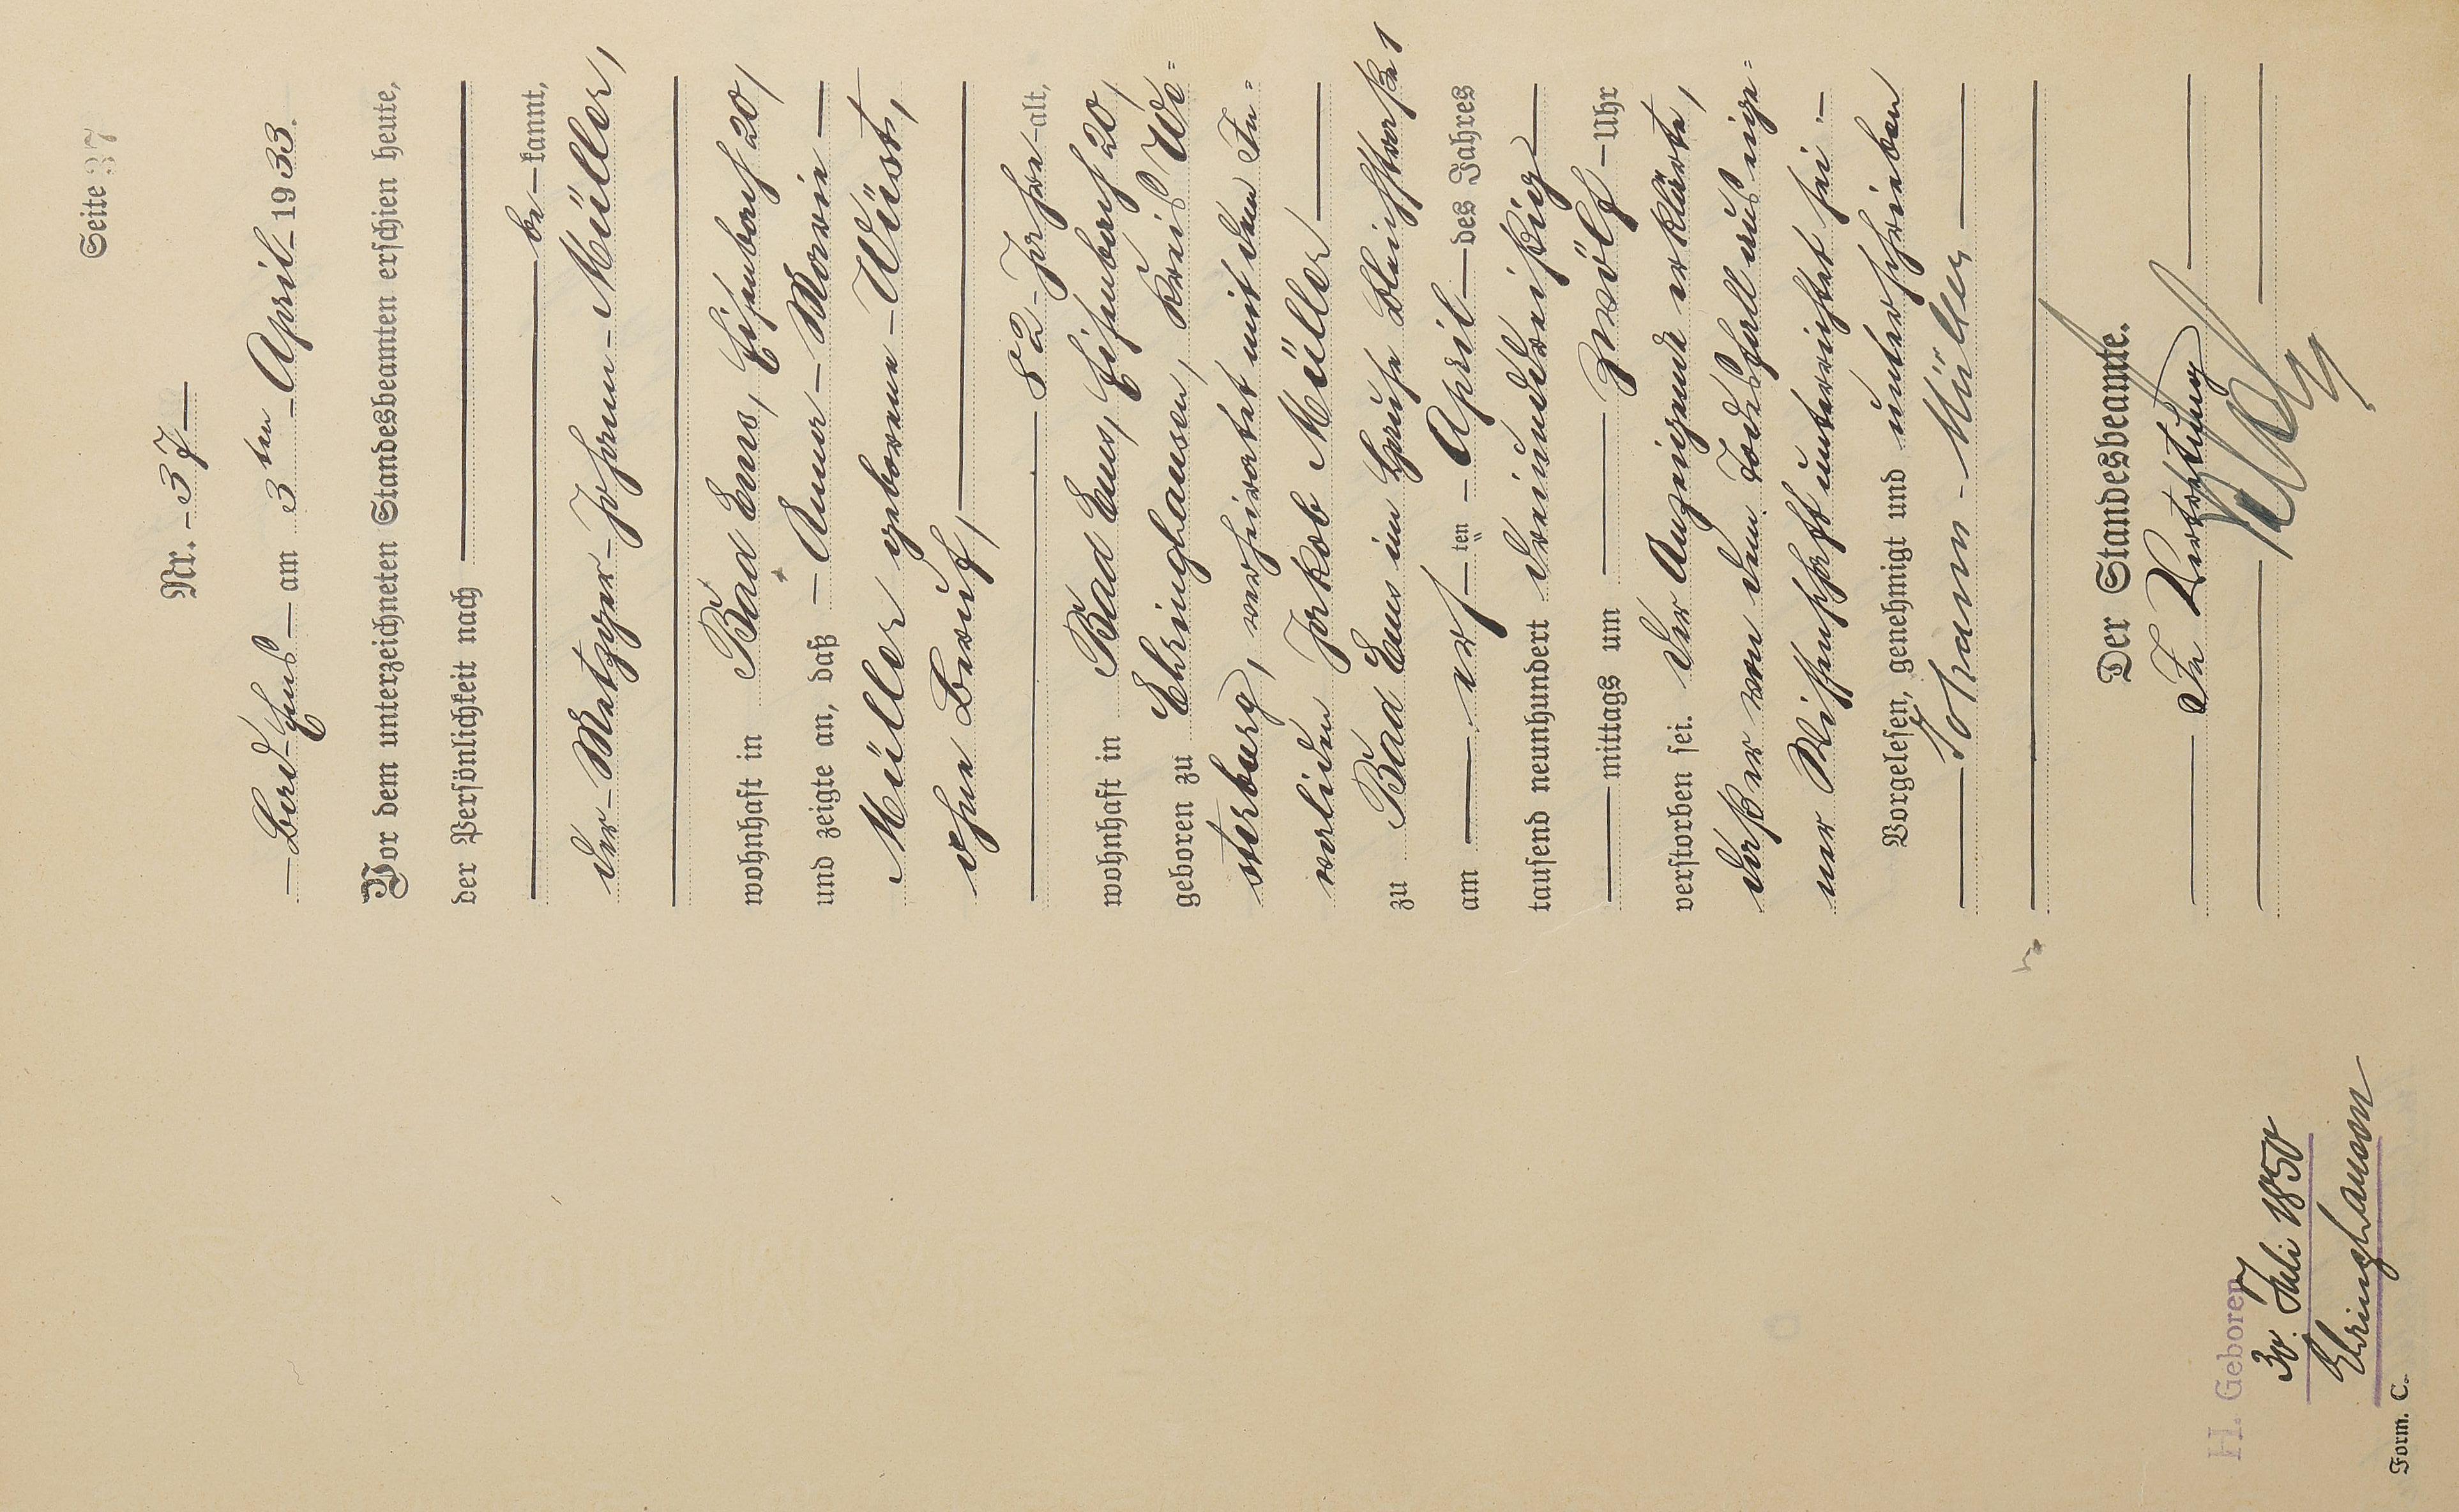 Seite 37
Nr. 37
Bad Ems am 3ten April 1933.
Vor dem unterzeichneten Standesbeamten erschien heute,
der Persönlichkeit nach
be kannt,
der Metzger Johann Müller,
wohnhaft in Bad Ems, Eisenbach 20,
und zeigte an, daß Anna Maria
Müller geborene Wüst,
ohne Beruf,
82 Jahre alt,
wohnhaft in Bad Ems, Eisenbach 20,
geboren zu Ehringhausen, Kreis We=
sterburg, verheiratet mit dem In=
validen Jakob Müller
zu Bad Ems im Hause Bleichstraße 1
am ersten April des Jahres
tausend neunhundert dreiunddreißig
mittags um zwölf Uhr
verstorben sei. Der Anzeigende erklärte,
daß er von dem Todesfall aus eige=
ner Wissenschaft unterrichtet sei.
Vorgelesen, genehmigt und unterschrieben
Johann Müller
Der Standesbeamte.
In Vertretung
H. Geboren
30. Juli 1850
Ehringhausen
Form. C.